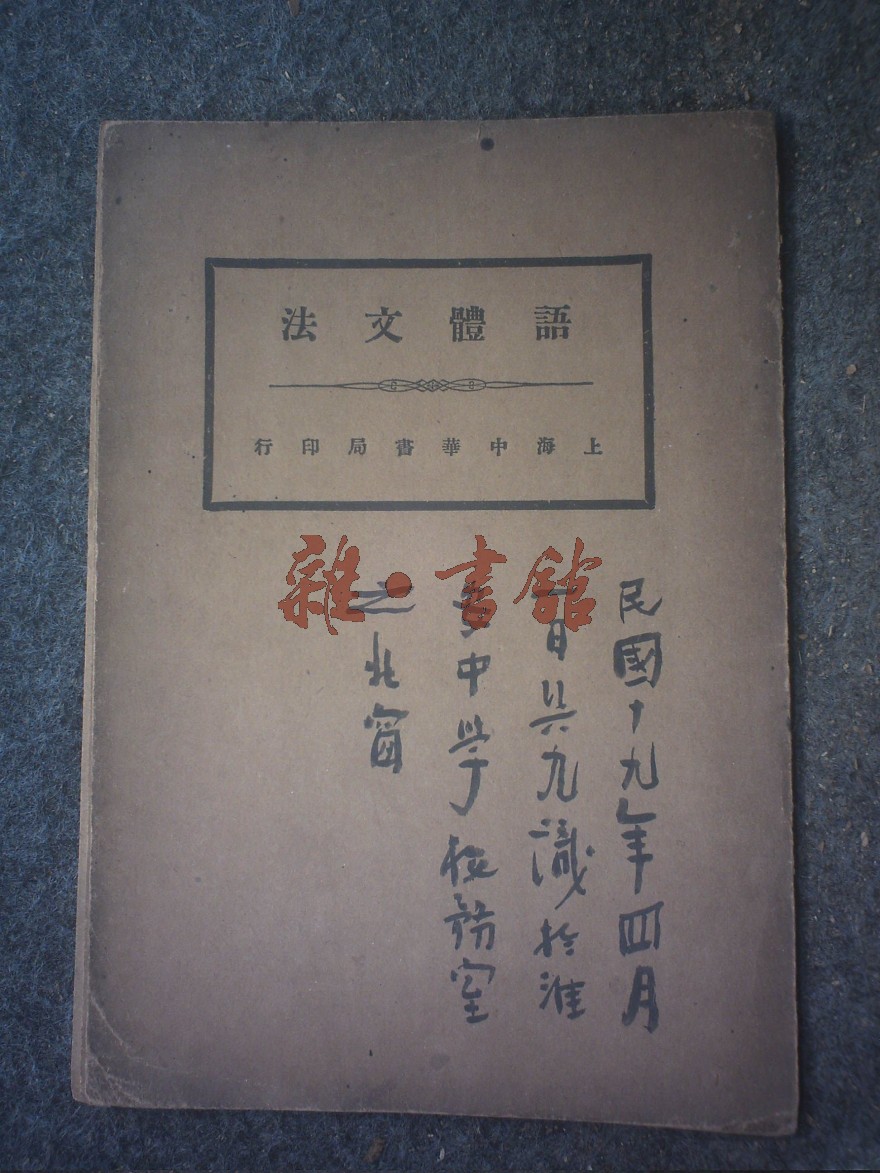 語體文法
上海中華書局印行
雜·書館
民國十九年四月
日九識於淮
中學校務室
之北窗